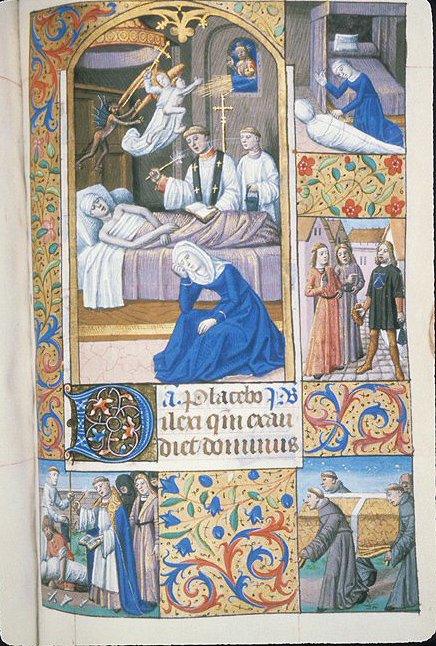 a. Placebo ps
Dilexi qm exau
diet dominus